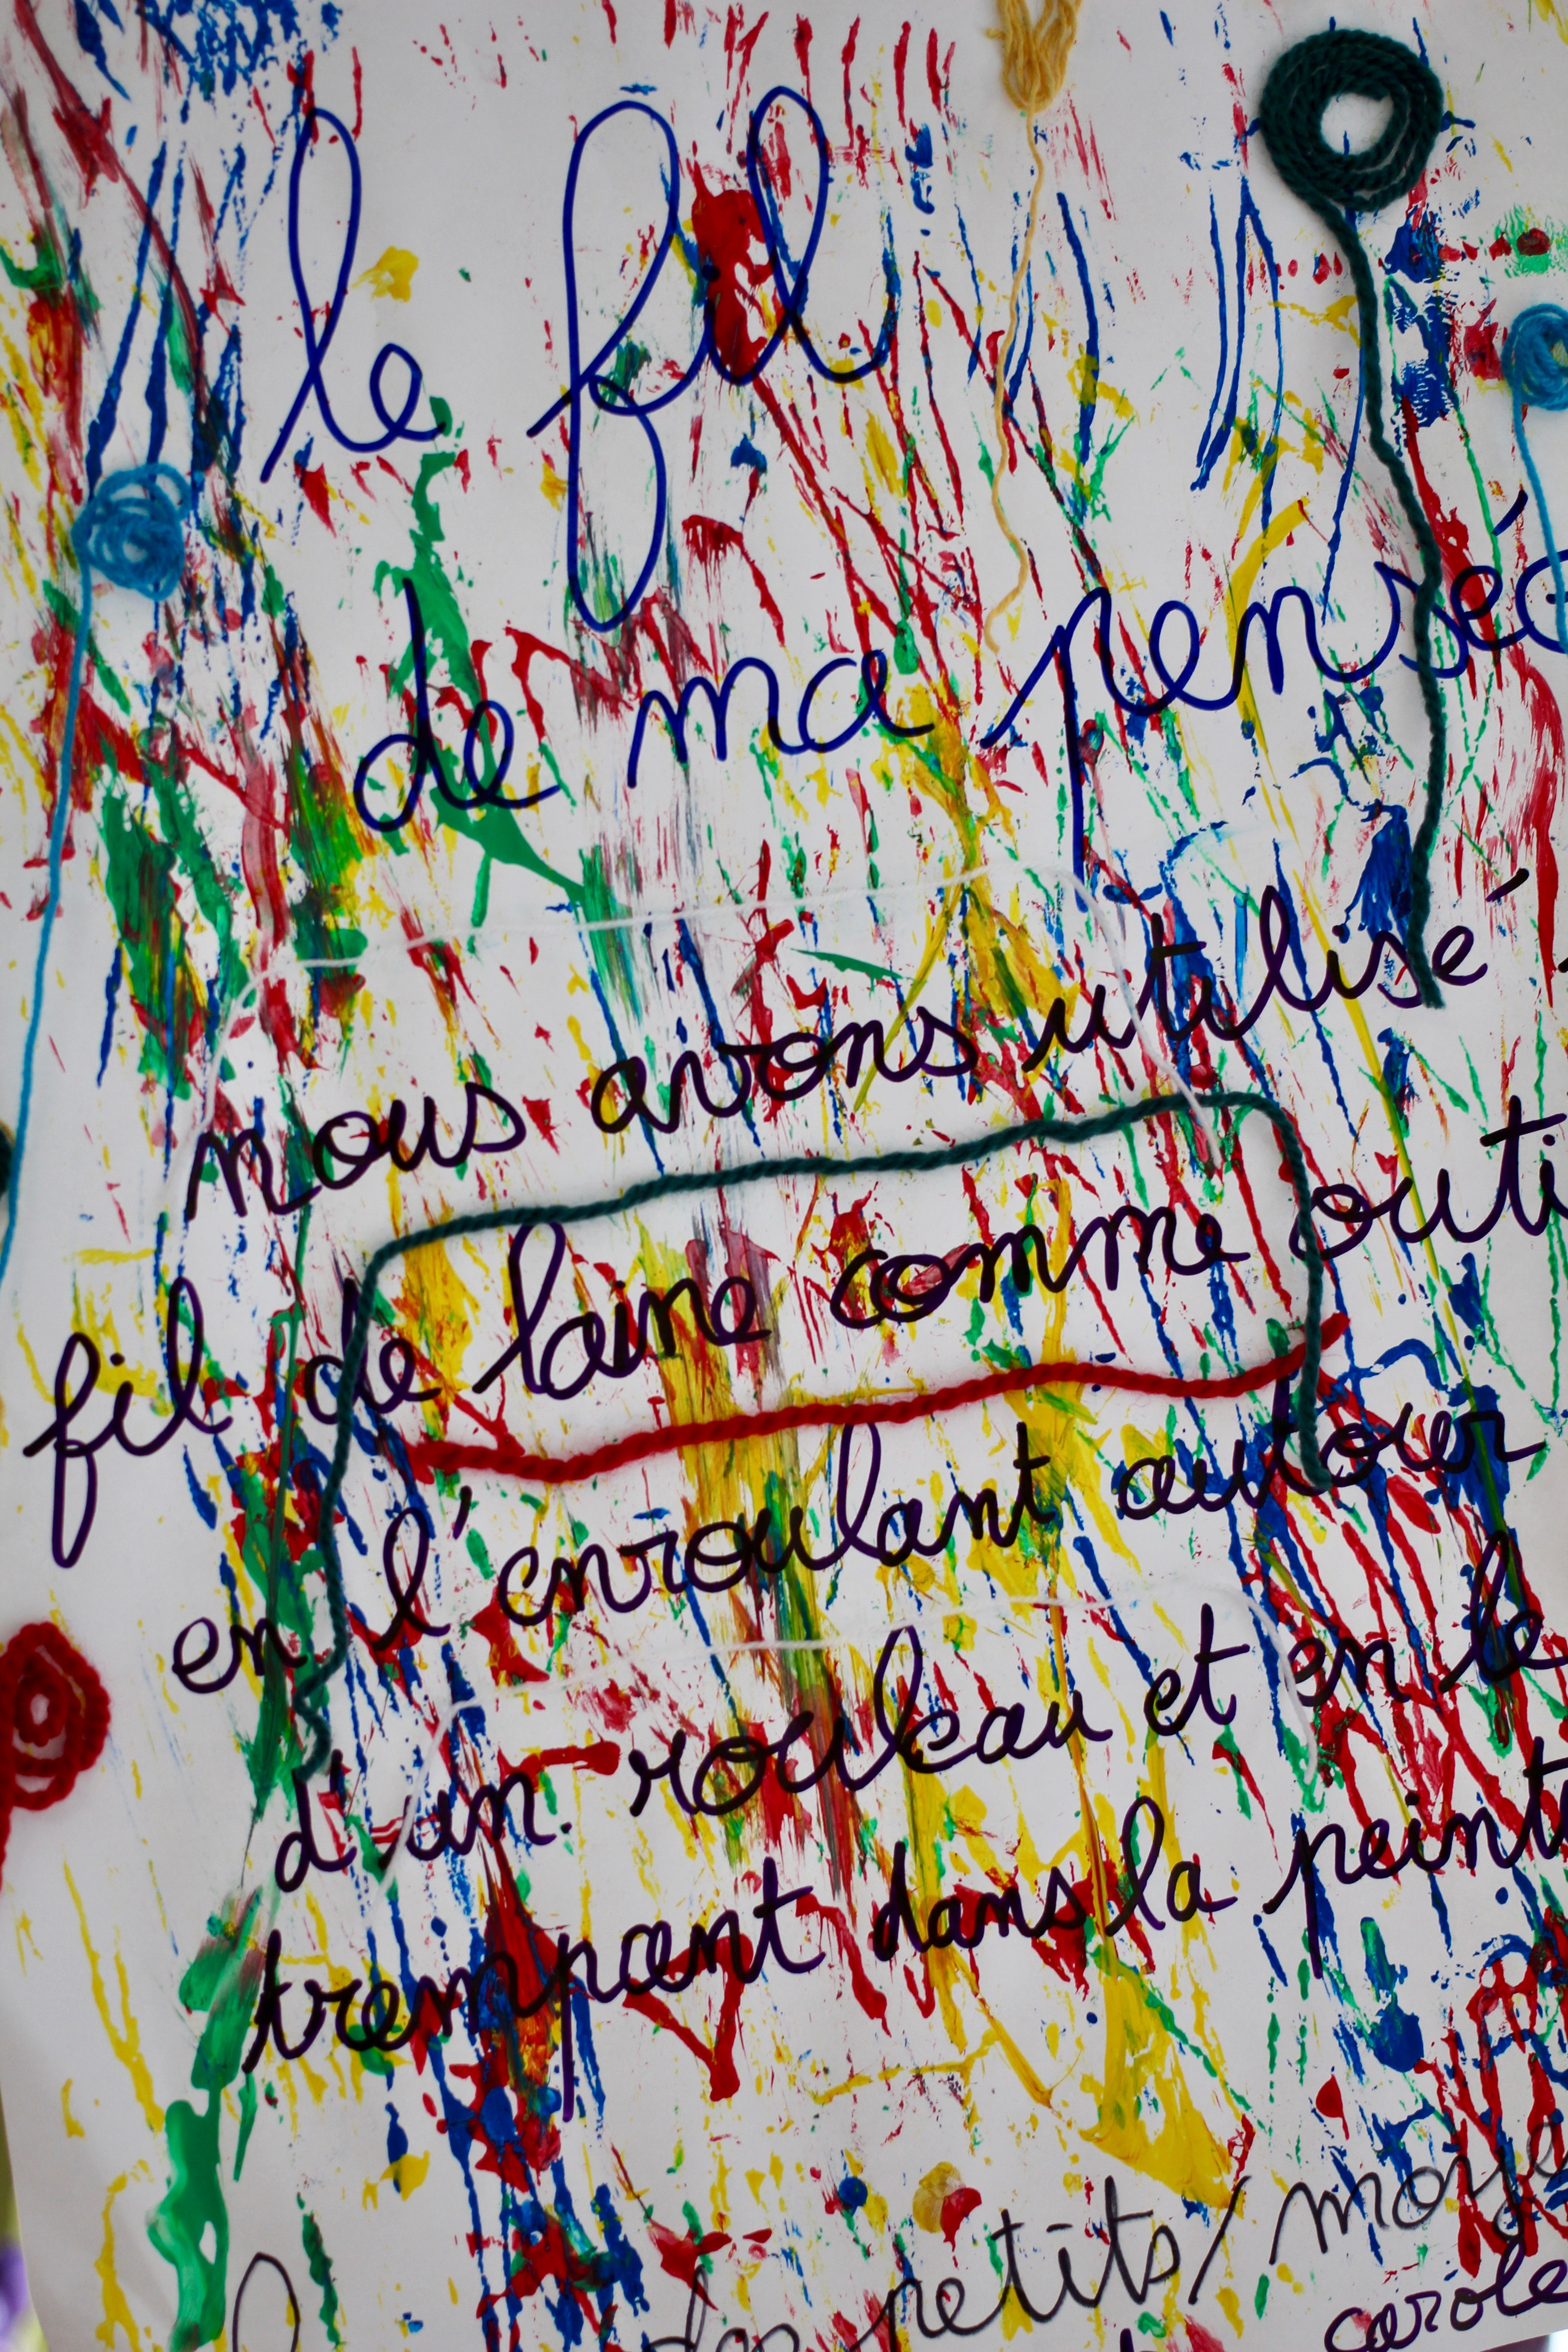 le fil
de ma pensée
nous avons utilisé
fil de laine comme outi
en l'enroulant autour
d'un rouleau et en le
trempant dans la peint
des petits/moye
carole